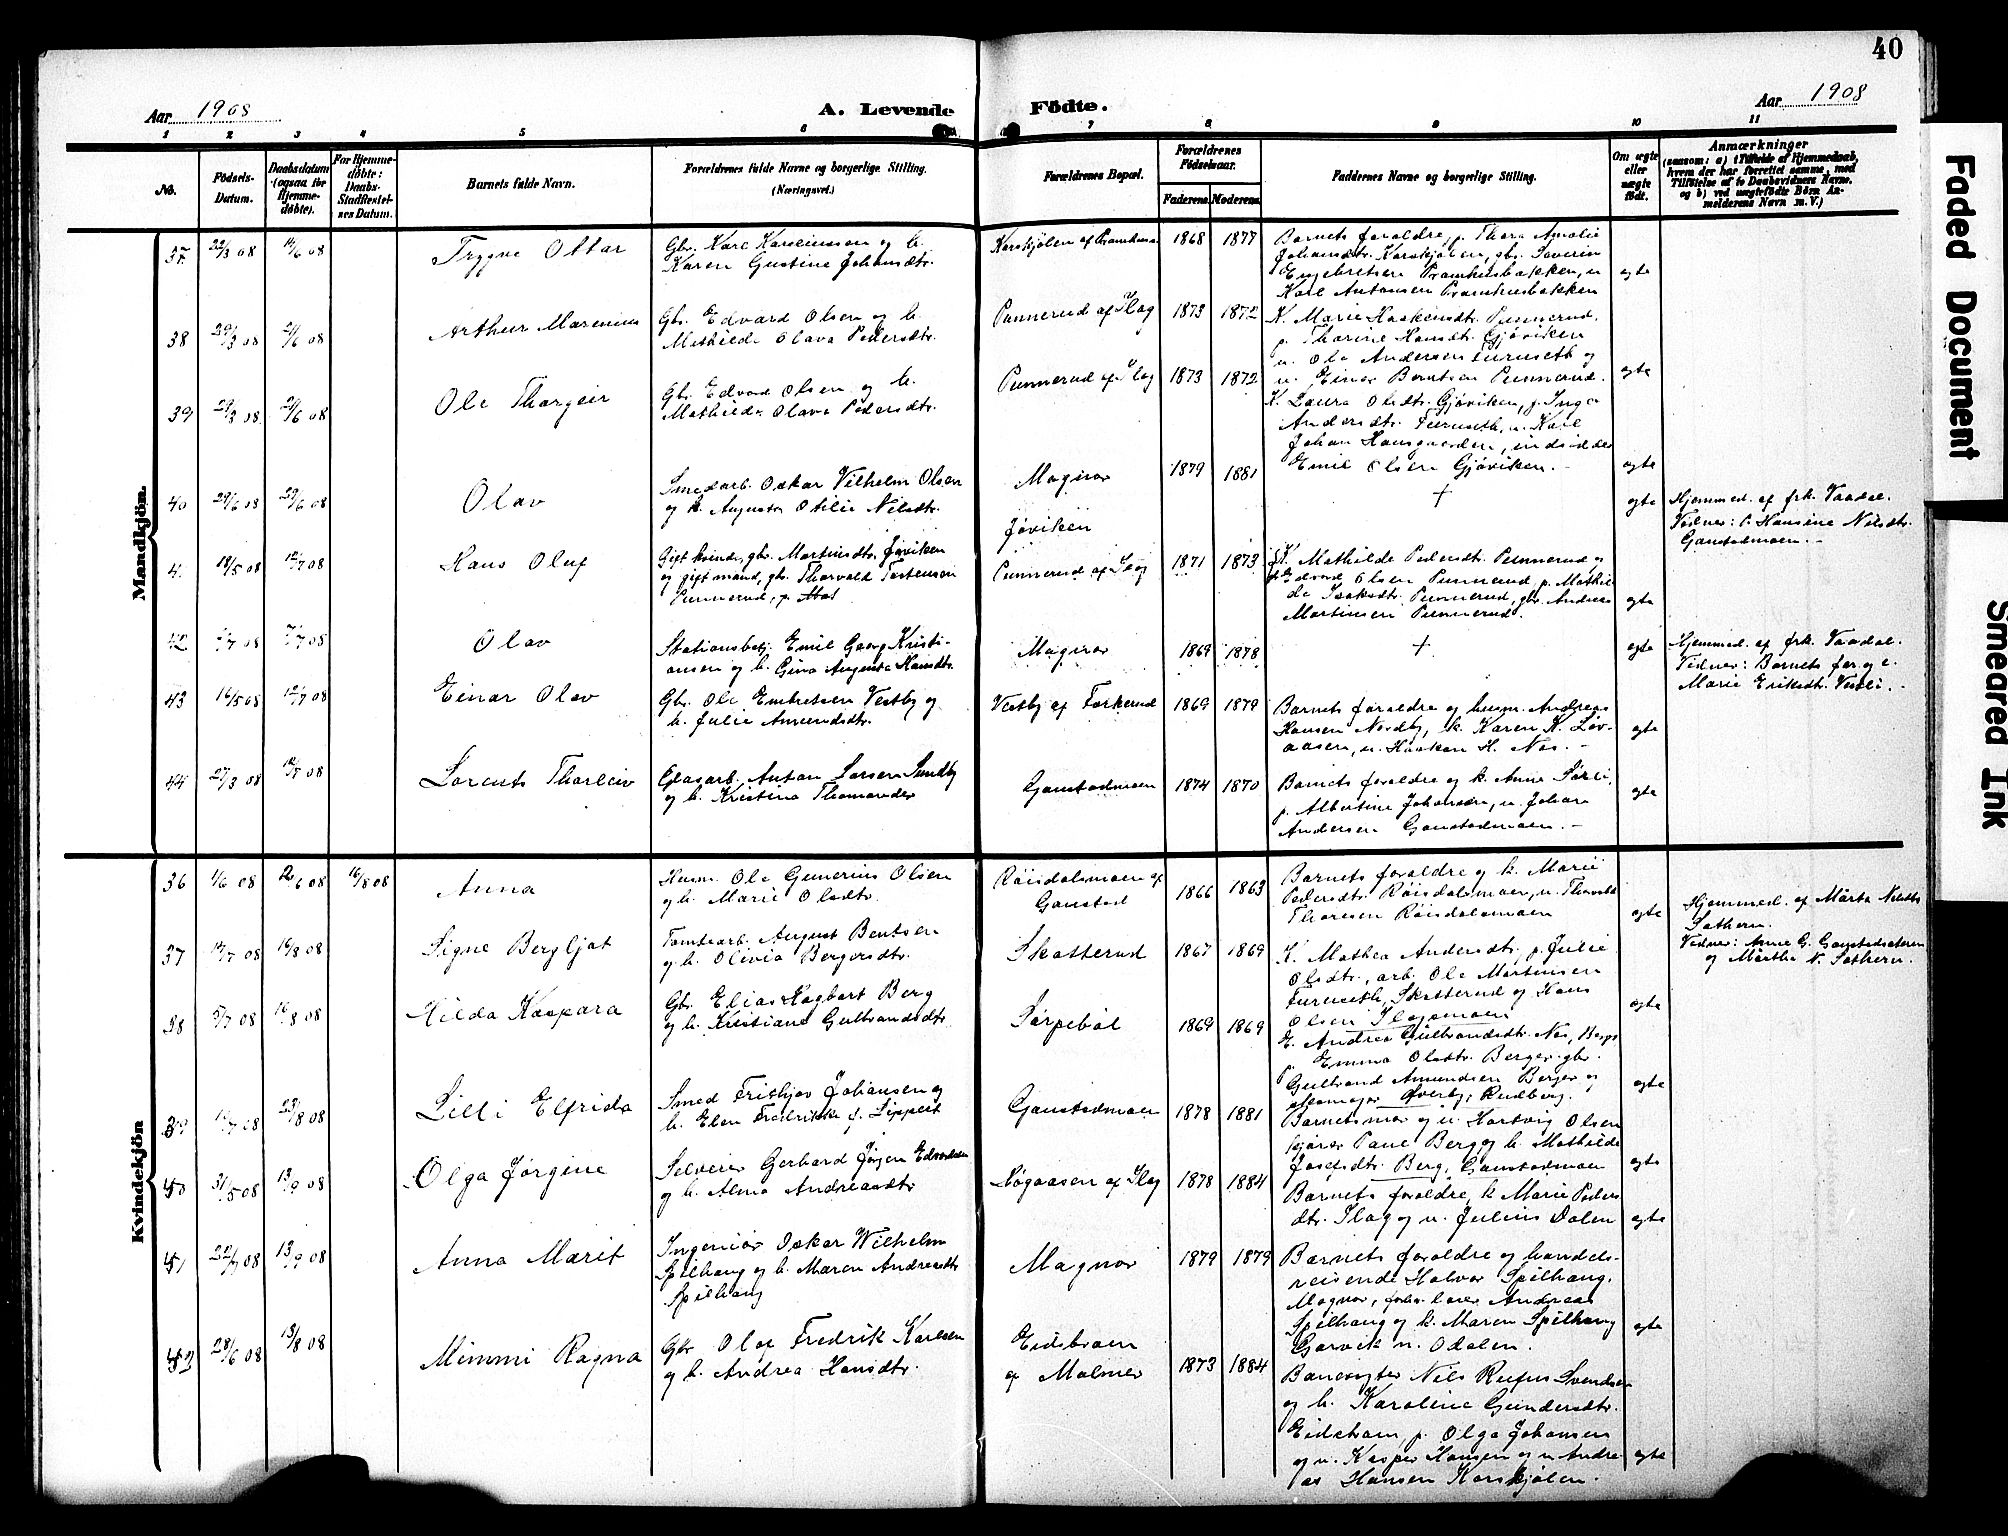 40
Aar 1908
A. Levende
Födte.
Aar 1908
1 2 3 4 5 6 7 8 9 10 11
No.
Födsels-
Datum.
Daabsdatum
(ogsaa for
Hjemme-
döbte).
For Hjemme-
döbte:
Daabs-
Stadfæstel-
ses Datum.
Barnets fulde Navn.
Forældrenes fulde Navne og borgerlige Stilling.
(Næringsvei.)
Forældrenes Bopæl.
Forældrenes
Födselsaar.
Faderens. Moderens.
Faddernes Navne og borgerlige Stilling.
Om ægte
eller
uægte
födt.
Anmærkninger
(saasom: a) i Tilfælde af Hjemmedaab,
hvem der har forrettet samme, med
Tilföielse af to Daabsvidners Navne,
og b) ved uægtefödte Börn An-
melderens Navn m. V.)
Mandkjön.
37 22/3 08 14/6 08
Trygve Ottar
Gbr. Karl Kareliussen og h.
Karen Gustine Johansdtr.
Karskjølen af
1868 1877
Barnets foraldre, p. Thora Amalie
Johansdtr. Karskjølen, gbr. Severin
Engebretsen Pramhusbakken, u.
Karl Antonsen Pramhusbakken
egte
38 29/3 08 21/6 08
Arthur Marenius
Gbr. Edvard Olsen og h.
Mathilde Olava Pedersdtr.
Punnerud af Ilag
1873 1872
K. Marie Haakensdtr. Punnerud,
p. Thorine Hansdtr. Gjøviken
u. Ole Andersen Furuseth og
u. Einar Berntsen Punnerud.
egte
39 29/3 08 21/6 08
Ole Thorgeir
Gbr. Edvard Olsen og h.
Mathilde Olava Pedersdtr.
Punnerud af Ilag
1873 1872
K. Laura Olsdtr. Gjøviken, p. Inga
Andersdtr. Furuseth, u. Karl
Johan Hansgaarden, indsidder
Emil Olsen Gjøviken. -
egte
40 29/6 08 29/6 08
Olav
Smedarb. Oskar Vilhelm Olsen
og h. Augusta Otilie Nilsdtr.
Magnor
1879 1881
+
egte
Hjemmed. af frk. Vaadal.
Vidner: p. Hansine Nilsdtr.
Gaustadmoen. -
4. 18/5 08 12/7 08
Hans Oluf
Gift kvinde, gbr. Martinsdtr. Jøviken
og gift mand, gbr. Thorvald Torstensen
Punnerud,
Jøviken
Punnerud af Ilag
1871 1873
K. Mathilde Pedersdtr. Punnerud og
Edvard Olsen Punnerud, p. Mathil-
de Isaksdtr. Punnerud, gbr. Andreas
Martinsen Punnerud.
egte
42 /7 08 /7 08
Olav
Stationsbetj. Emil Georg Kristi-
ansen og h. Gina Augusta Hansdtr.
Magnor
1869 1878
+
egte
Hjemmed. af frk. Vaadal.
Vidner: Barnets far og e.
Marie Eriksdtr. Vestli. -
43 16/5 08 12/7 08
Einar Olav
Gbr. Ole Embretsen Vestby og
h. Julie Amundsdtr.
Vestby af Torkerud
1869 1879
Barnets foraldre og husm. Andreas
Hansen Nordby, k. Karen K. Løv-
aasen, u. Haaken H. Nes. -
egte
44 27/3 08
Lorents Thorleiv
Glasarb. Anton Larsen Sundby
og h. Kristina Thomander
Gaustadmoen
1874 1870
Barnets foraldre og k. Anne Sørli,
p. Albertine Johansdtr, u. Johan
Andersen Gaustadmoen. -
egte
Kvindekjön
36 1/6 08 /6 08 16/8 08
Anna
Husm. Ole Gunerius Olsen
og h. Marie Olsdtr.
Røisdalsmoen af
Gaustad
1866 1863
Barnets foraldre og k. Marie
Pedersdtr. Røisdalsmoen, u. Thorvald
Thoresen Røisdalsmoen
egte
Hjemmed. af Märta Nilsdtr.
Sathern.
Vidner: Anne G. Gaustadsæteren
og Märtha N. Sathern.
37 /7 08 16/8 08
Signe Bergljot
Tomtearb. August Bentsen
og h. Olivia Bergersdtr.
Skotterud
1867 1869
K. Mathea Andersdtr., p. Julie
Olsdtr., arb. Ole Martinsen
Furuseth, Skotterud og Hans
Olsen Ilagsmoen
egte
38 5/7 08 16/8 08
Hilda Kaspara
Gbr. Elias Hagbart Berg
og h. Kristiane Gulbrandsdtr.
Sørpebøl
1869 1869
E. Andrea Gulbrandsdtr. Nes, Berger
p. Emma Olsdtr. Berger, gbr.
Gulbrand Amundsen Berger og
Øverby, Rudberg.
egte
39 /7 08 23/8 08
Lilli Elfrida
Smed Frithjov Johansen og
h. Elen Fredrikke f. Lippert
Gaustadmoen
1878 1881
Barnets mor og u. Hartvig Olsen
kjører Paul Berg og h. Mathilde
Josefsdtr. Berg, Gaustadmoen
egte
40 31/5 08 13/9 08
Olga Jørgine
Selveier Gerhard Jørgen Edvardsen
og h. Alma Andreasdtr.
Løgaasen af Ilag
1878 1884
Barnets foraldre, k. Marie Peders
dtr. Ilag og u. Julius Dalen
egte
41 22/7 08 13/9 08
Anna Marit
Ingeniør Oskar Wilhelm
Spilhaug og h. Maren Andreasdtr.
Spilhaug
Magnor
1879 1879
Barnets foraldre og handels-
reisende Halvor Spilhaug.
Magnor, forh. lærer Andreas
Spilhaug og k. Maren Spilhaug
Garvik n. Odalen.
egte
42 28/6 08 13/8 08
Mimmi Ragna
Gbr Olaf Fredrik Karlsen
og h. Andrea Hansdtr.
Eidsbraen
af Malmer
1873 1884
Banevogter Nils Rufus Svendsen
og h. Karoline Gundersdtr.
Eidsbraen, p. Olga Johansen
og u. Kasper Hansen og u. Andre
as Hansen Karskjølen.
egte
Faded Document
Smeared Ink